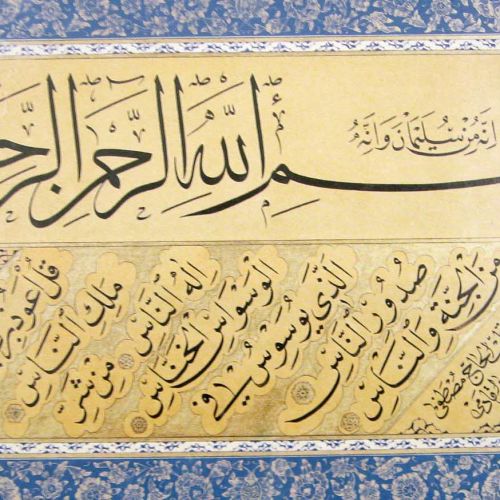 انه من سليمان وانه
سم الله الرحمن الرح
قل اعوذ بر
ملك الناس
اله الناس من شر
الوسواس الخناس
الذي يوسوس في
صدور الناس
من الجنة والناس
الحاج مصطفى